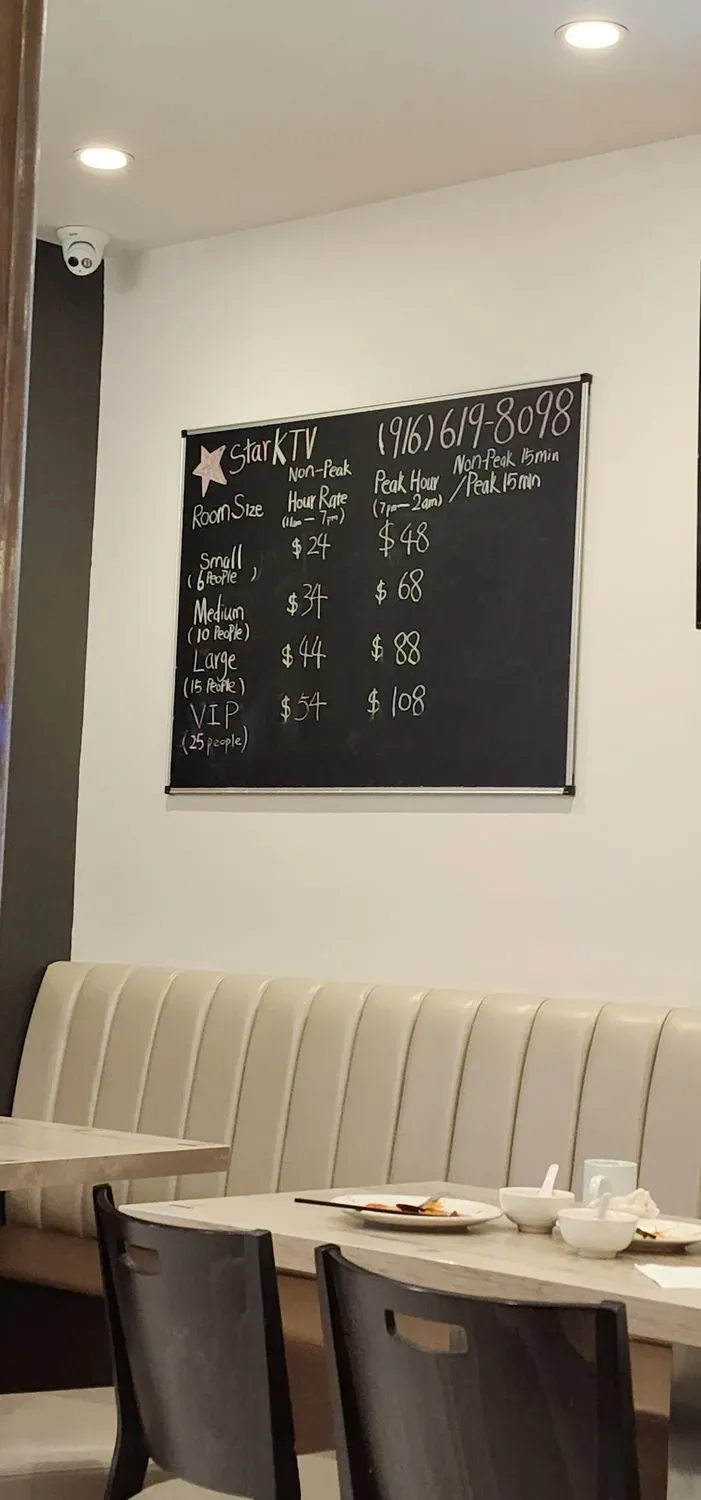 Star KTV (916)619-8098
Room Size Non-Peak Hour Rate (11am - 7pm) Peak Hour (7pm - 2am) Non-Peak 15min / Peak 15min
Small $24 $48
(6 People )
Medium $34 $68
(10 People)
Large $44 $88
(15 People)
VIP $54 $108
(25 people)